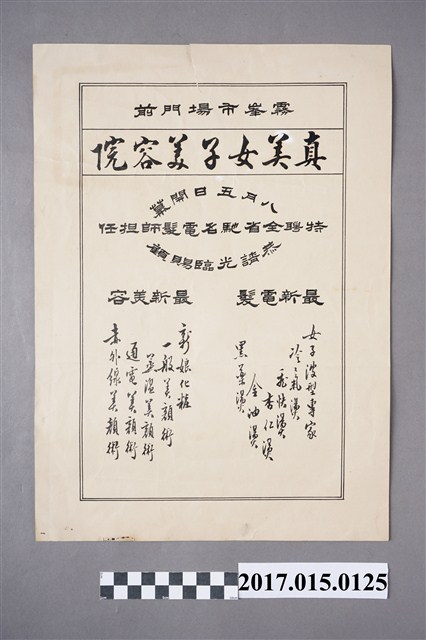 霧峯市場門前
真美女子美容院
八月五日開幕
特聘全省馳名電髮師担任
恭請光臨賜顧
最新電髮
女子波型專家
冷氣燙
飛快燙
杏仁燙
金油燙
黑藥燙
最新美容
新娘化粧
一般美顏術
蒸溫美顏術
通電美顏術
赤外線美顏術
2017.015.0125